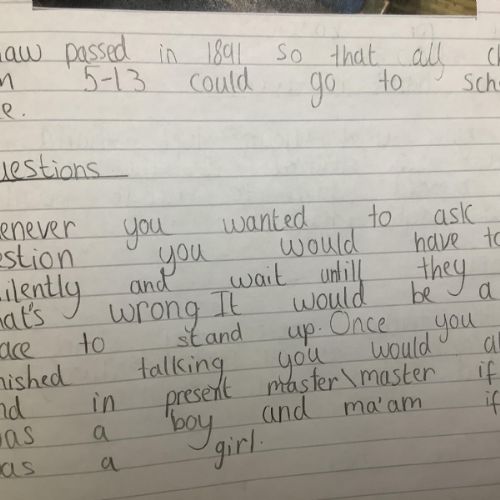 law passed in 1891 so that all
5-13 could go to

uestions
enever you wanted to ask
estion you would have to
ilently and wait untill they
hat's wrong It would be a
ace to stand up. Once you
nished talking you would
nd in present master\master if
as a boy and ma'am if
as a girl.